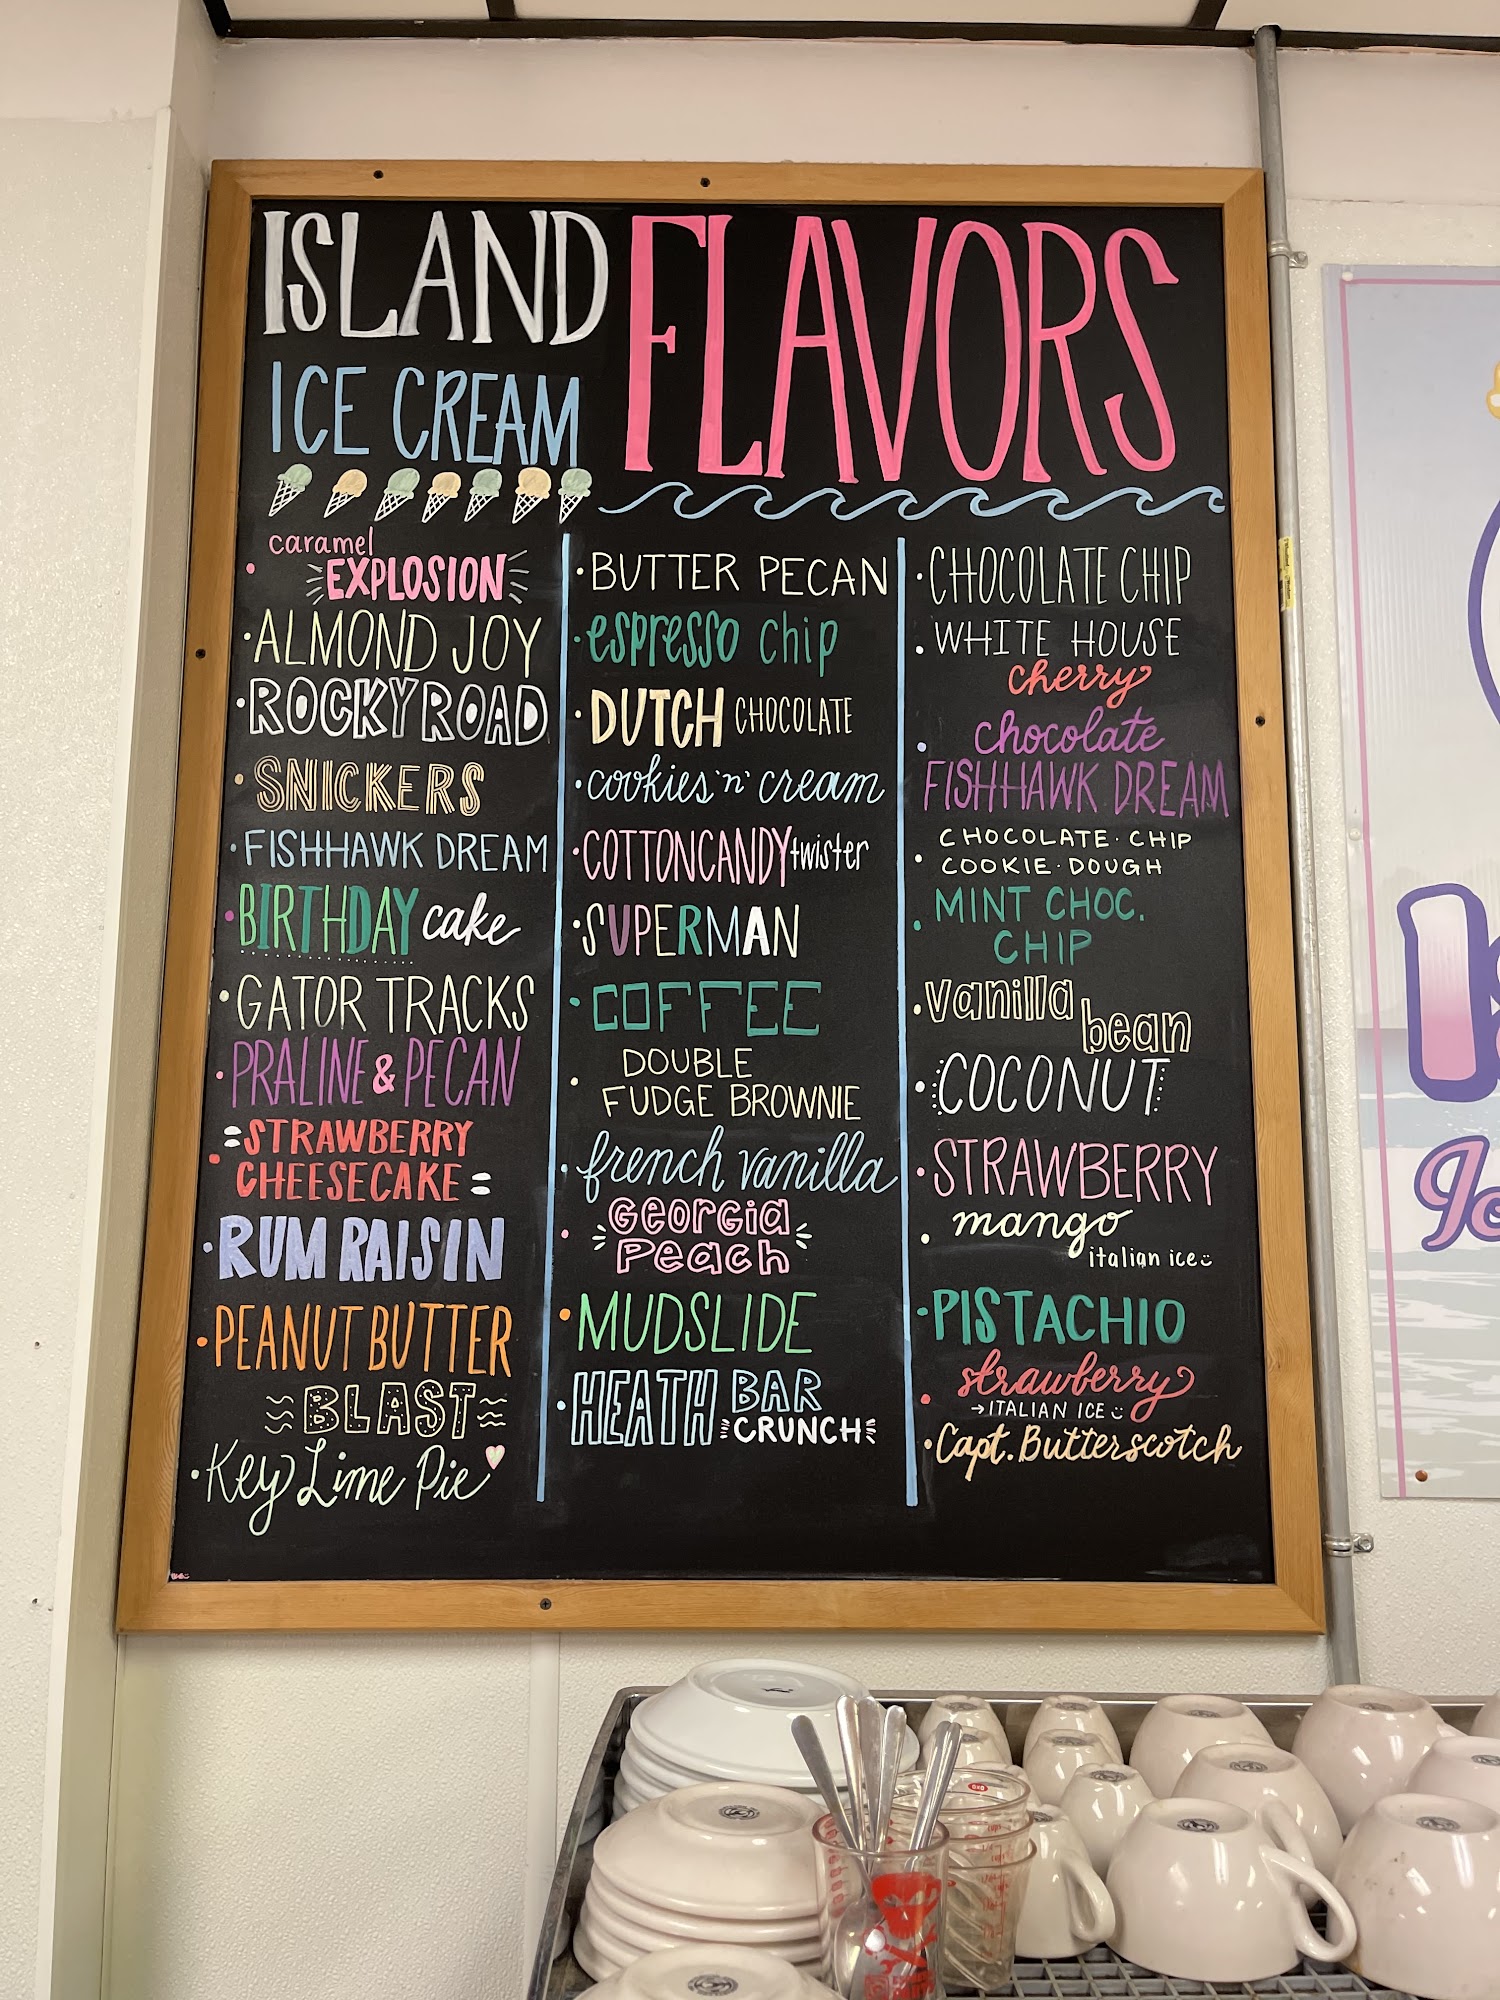 ISLAND
ICE CREAM
FLAVORS
caramel
EXPLOSION
ALMOND JOY
ROCKY ROAD
SNICKERS
FISHHAWK DREAM
BIRTHDAY cake
GATOR TRACKS
PRALINE & PECAN
STRAWBERRY
CHEESECAKE
RUM RAISIN
PEANUT BUTTER
BLAST
Key Lime Pie
BUTTER PECAN
espresso chip
DUTCH CHOCOLATE
cookies 'n' cream
COTTONCANDY twister
SUPERMAN
COFFEE
DOUBLE
FUDGE BROWNIE
french vanilla
Georgia
Peach
MUDSLIDE
HEATH BAR
CRUNCH
CHOCOLATE CHIP
WHITE HOUSE
cherry
chocolate
FISHHAWK DREAM
CHOCOLATE · CHIP
COOKIE · DOUGH
MINT CHOC.
CHIP
vanilla
bean
COCONUT
STRAWBERRY
mango
italian ice
PISTACHIO
strawberry
→ITALIAN ICE
Capt. Butterscotch